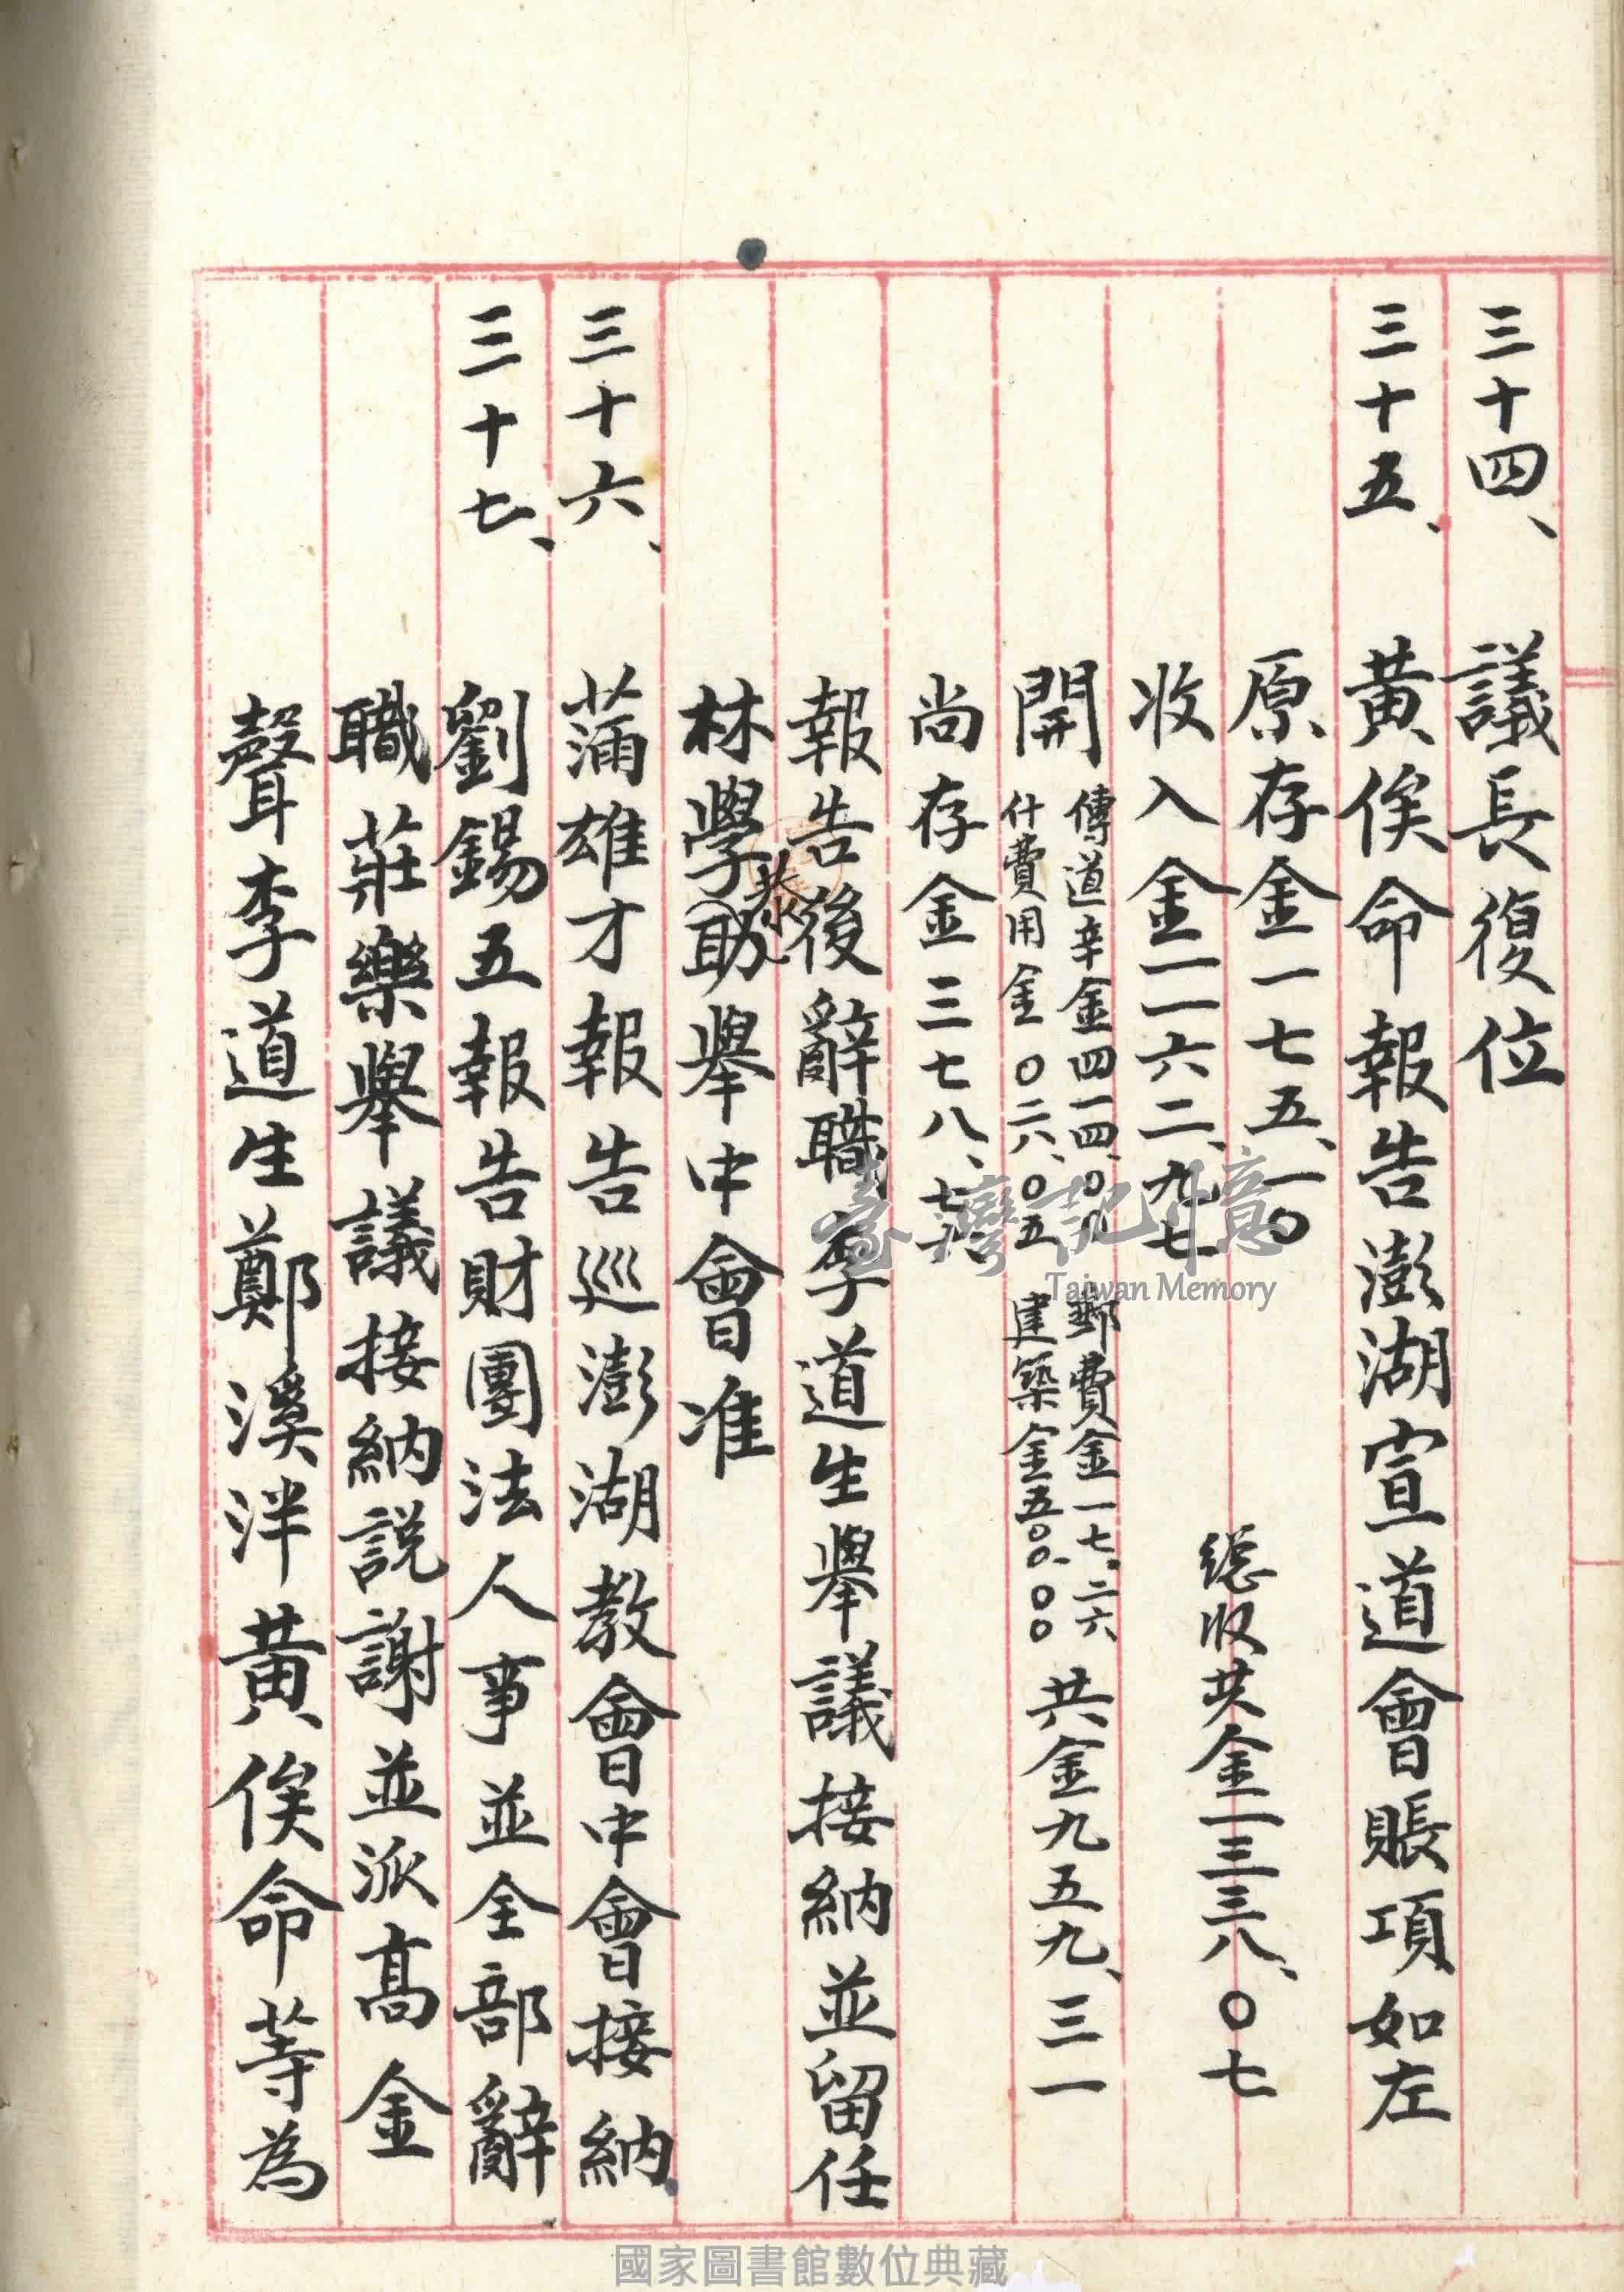 三十四、議長復位
三十五、黃俟命報告澎湖宣道會賬項如左
原存金一七五、一〇
總收共金一三三八、〇七
收入金一一六二、九七
開
傳道辛金四一四、〇〇 郵費金一七、二六
什費用金〇二八、〇五 建築金五〇〇、〇〇
共金九五九、三一
尚存金三七八、七六
報告後辭職李道生舉議接納並留任
林學(助)恭舉中會准
三十六、蒲雄才報告巡澎湖教會中會接納
三十七、劉錫五報告財團法人事並全部辭
職莊樂舉議接納說謝並派高金
聲李道生鄭溪泮黃俟命等為
臺灣記憶
Taiwan Memory
國家圖書館數位典藏